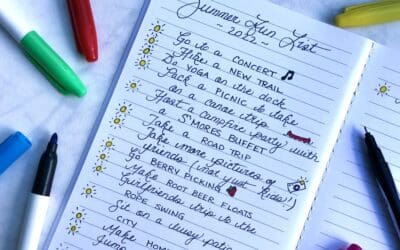 Summer Fun List
~ 2022 ~
Go to a CONCERT
Hike a NEW TRAIL
Do YOGA on the dock
Pack a PICNIC to take
on a canoe trip
Host a campfire party with
a S'MORES BUFFET
Take a ROAD TRIP
Take more pictures of
friends (not just kids!!)
Go BERRY PICKING
Make ROOT BEER FLOATS
Girlfriends trip to the
ROPE SWING
Sit on a busy patio
CITY
Make HOM
Jump